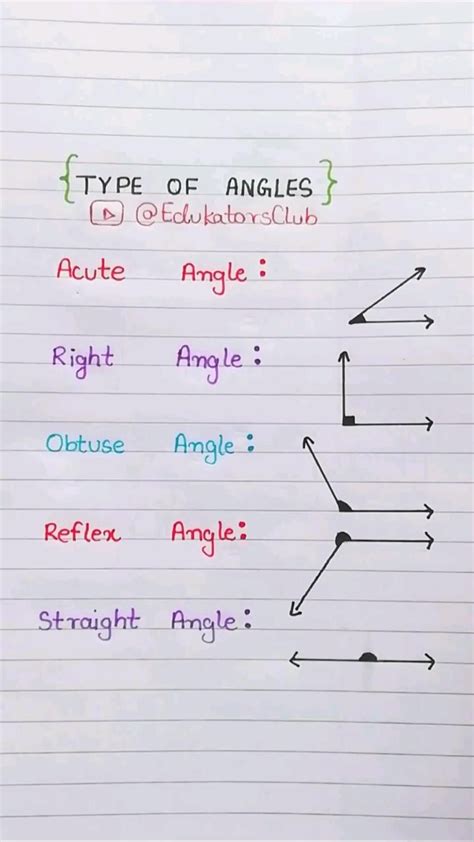 {TYPE OF ANGLES}
@EdukatorsClub
Acute Angle:
Right Angle:
Obtuse Angle:
Reflex Angle:
Straight Angle: